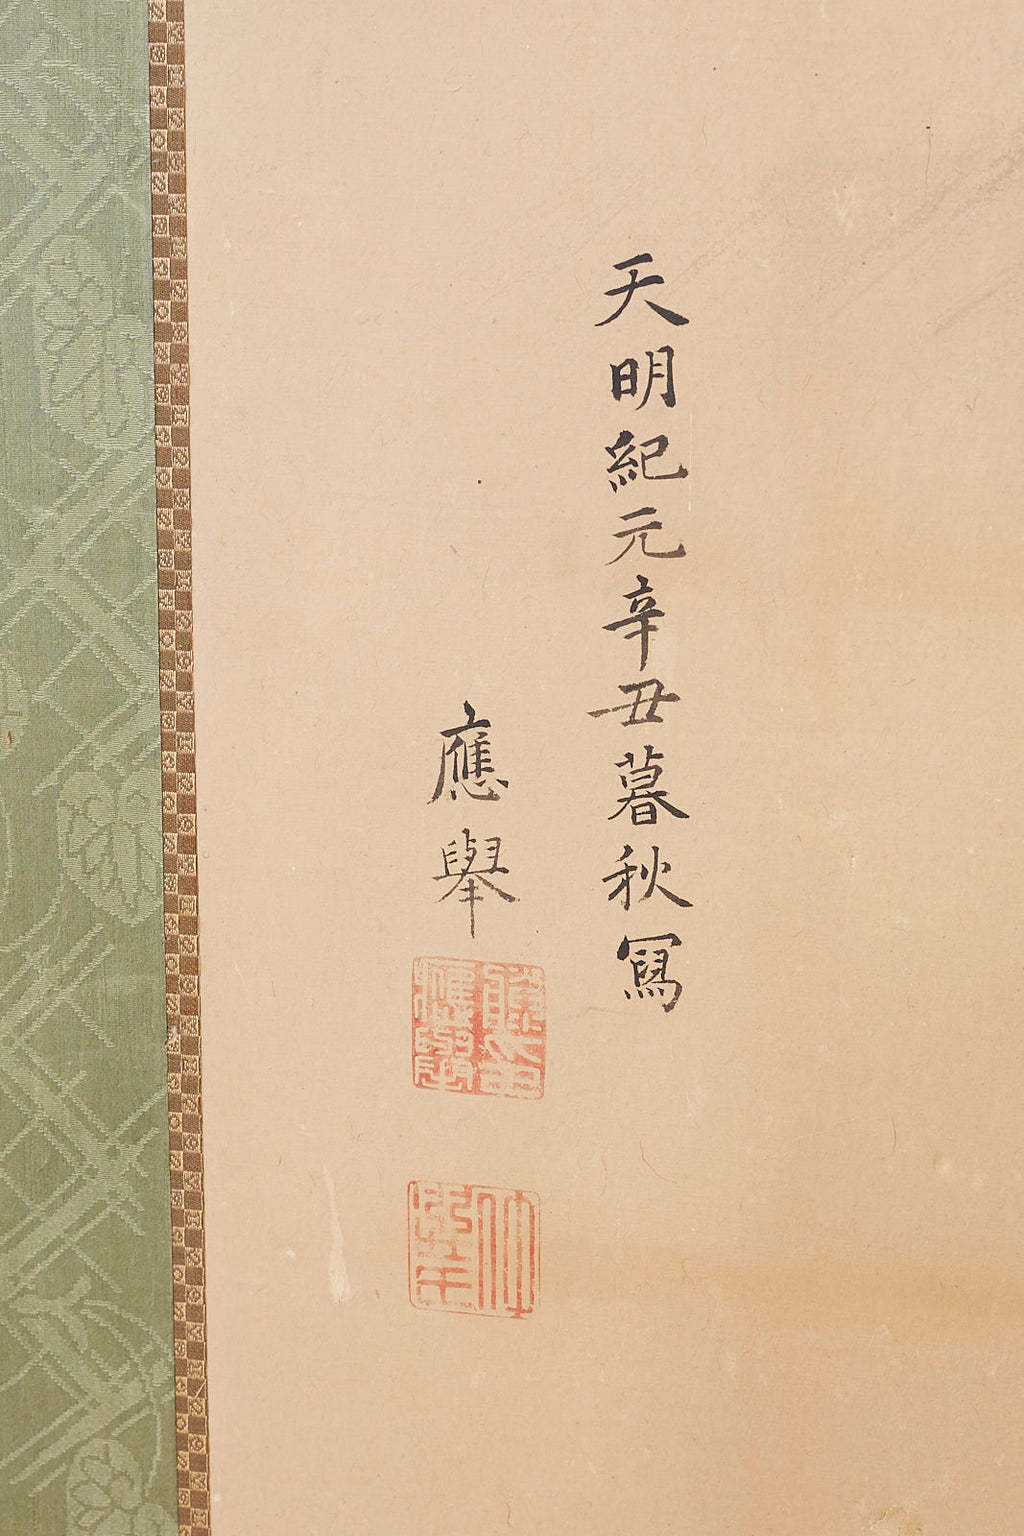 天明紀元辛丑暮秋寫
應舉